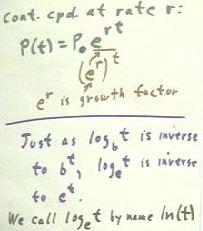 Cont. cpd. at rate r:
P(t) = P₀ e^rt
(e^r)^t
e^r is growth factor
Just as log_b t is inverse
to b^t, log_e t is inverse
to e^t.
We call log_e t by name ln(t)